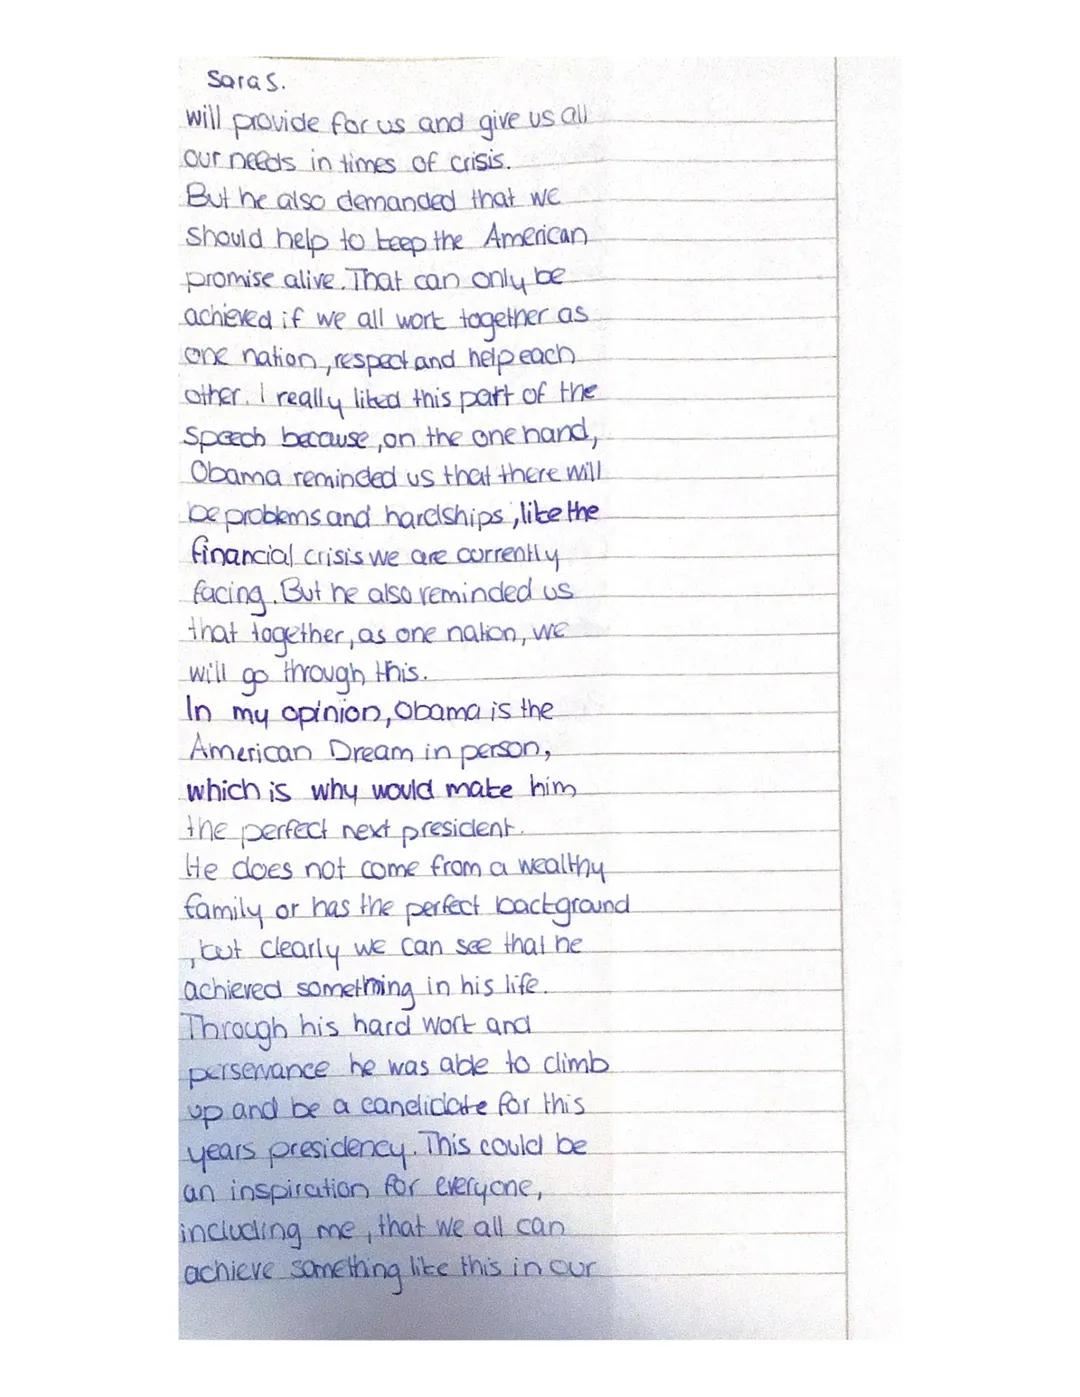 Sara S.
will provide for us and give us all
our needs in times of crisis.
But he also demanded that we
should help to keep the American
promise alive. That can only be
achieved if we all work together as
one nation, respect and help each
other. I really liked this part of the
speech because, on the one hand,
Obama reminded us that there will
be problems and hardships, like the
financial crisis we are currently
facing. But he also reminded us
that together, as one nation, we
will go through this.
In my opinion, Obama is the
American Dream in person,
which is why would make him
the perfect next president.
He does not come from a wealthy
family or has the perfect background
, but clearly we can see that he
achieved something in his life.
Through his hard work and
perservance he was able to climb
up and be a candidate for this
years presidency. This could be
an inspiration for everyone,
including me, that we all can
achieve something like this in our